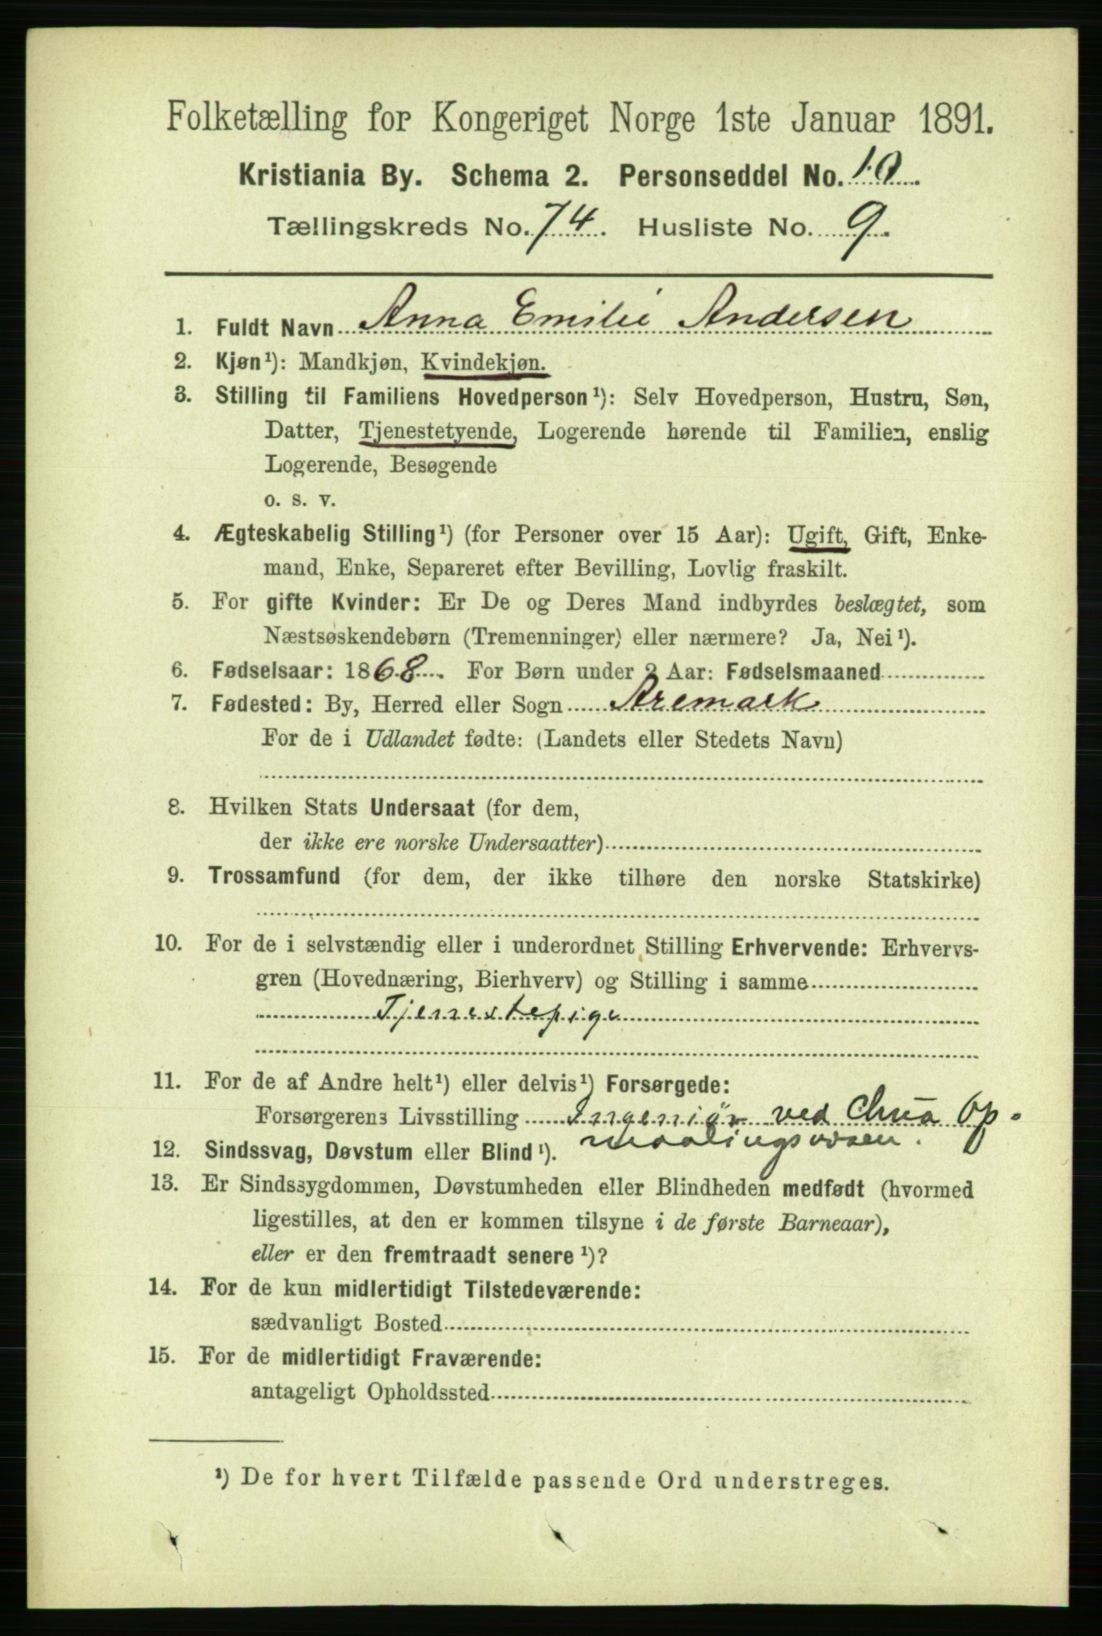 Folketælling for Kongeriget Norge 1ste Januar 1891.
Kristiania By. Schema 2. Personseddel No. 10.
Tællingskreds No. 74. Husliste No. 9.
1. Fuldt Navn Anna Emilie Andersen
2. Kjøn¹): Mandkjøn, Kvindekjøn.
3. Stilling til Familiens Hovedperson¹): Selv Hovedperson, Hustru, Søn,
Datter, Tjenestetyende, Logerende hørende til Familien, enslig
Logerende, Besøgende
o. s. v.
4. Ægteskabelig Stilling¹) (for Personer over 15 Aar): Ugift, Gift, Enke-
mand, Enke, Separeret efter Bevilling, Lovlig fraskilt.
5. For gifte Kvinder: Er De og Deres Mand indbyrdes beslægtet, som
Næstsøskendebørn (Tremenninger) eller nærmere? Ja, Nei¹).
6. Fødselsaar: 1868. For Børn under 2 Aar: Fødselsmaaned
7. Fødested: By, Herred eller Sogn Aremark
For de i Udlandet fødte: (Landets eller Stedets Navn)
8. Hvilken Stats Undersaat (for dem,
der ikke ere norske Undersaatter)
9. Trossamfund (for dem, der ikke tilhøre den norske Statskirke)
10. For de i selvstændig eller i underordnet Stilling Erhvervende: Erhvervs-
gren (Hovednæring, Bierhverv) og Stilling i samme
Tjenestepige
11. For de af Andre helt¹) eller delvis¹) Forsørgede:
Forsørgerens Livsstilling Ingeniør ved Chria Op-
maalingsvæsen.
12. Sindssvag, Døvstum eller Blind¹).
13. Er Sindssygdommen, Døvstumheden eller Blindheden medfødt (hvormed
ligestilles, at den er kommen tilsyne i de første Barneaar),
eller er den fremtraadt senere¹)?
14. For de kun midlertidigt Tilstedeværende:
sædvanligt Bosted
15. For de midlertidigt Fraværende:
antageligt Opholdssted
¹) De for hvert Tilfælde passende Ord understreges.